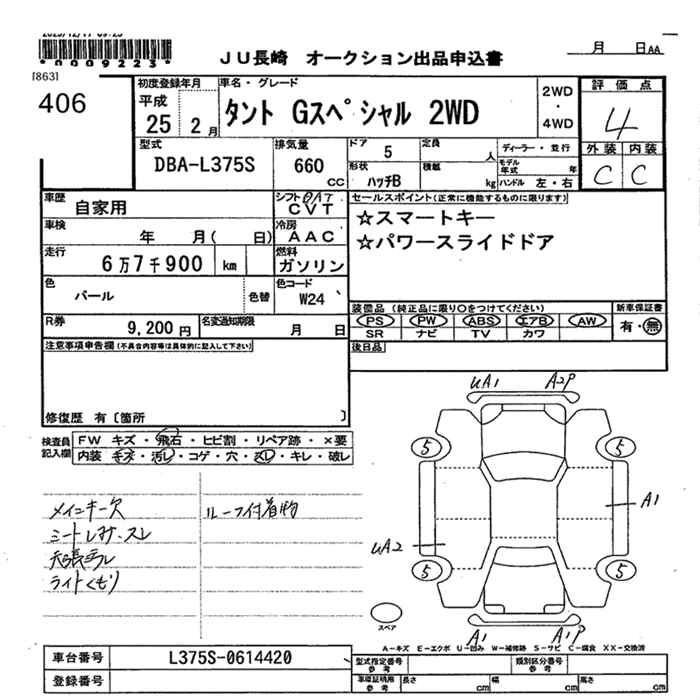 *0009223*
[863]
406
JU長崎 オークション出品申込書
月 日 AA
初度登録年月
平成
25 2月
車名・グレード
タント Gスペシャル 2WD
2WD
・
4WD
評価点
4
外装 内装
C C
型式
DBA-L375S
排気量
660
CC
ドア 5
形状 ハッチB
定員 人
積載 kg
ディーラー・並行
モデル年式 年
ハンドル 左・右
車歴 自家用
シフト CVT
車検 年 月( 日)
冷房 AAC
走行 6万7千900 km
燃料 ガソリン
色 パール 色替
色コード W24
R券 9,200円
名変通知期限 月 日
セールスポイント(正常に機能するものに限ります)
☆スマートキー
☆パワースライドドア
装備品(純正品に限り○をつけてください)
PS PW ABS エアB AW
SR ナビ TV カワ
新車保証書
有・無
後日品
注意事項申告欄(不具合内容等は具体的に記入して下さい)
修復歴 有〔箇所 〕
検査員記入欄
FW キズ・飛石・ヒビ割・リペア跡・×要
内装 キズ・汚レ・コゲ・穴・スレ・キレ・破レ
メインキー欠
シートレカサ・スレ
天張ヨゴレ
ライトくもり
ルーフ付着物
UA1 A2P
5 5
A1
UA2
5 5
A1 A1P
スペア
A-キズ E-エクボ U-凹み W-補修跡 S-サビ C-腐食 XX-交換済
車台番号 L375S-0614420
登録番号
型式指定番号 参考
類別区分番号 参考
車庫証明用 参考
長さ cm 幅 cm 高さ cm